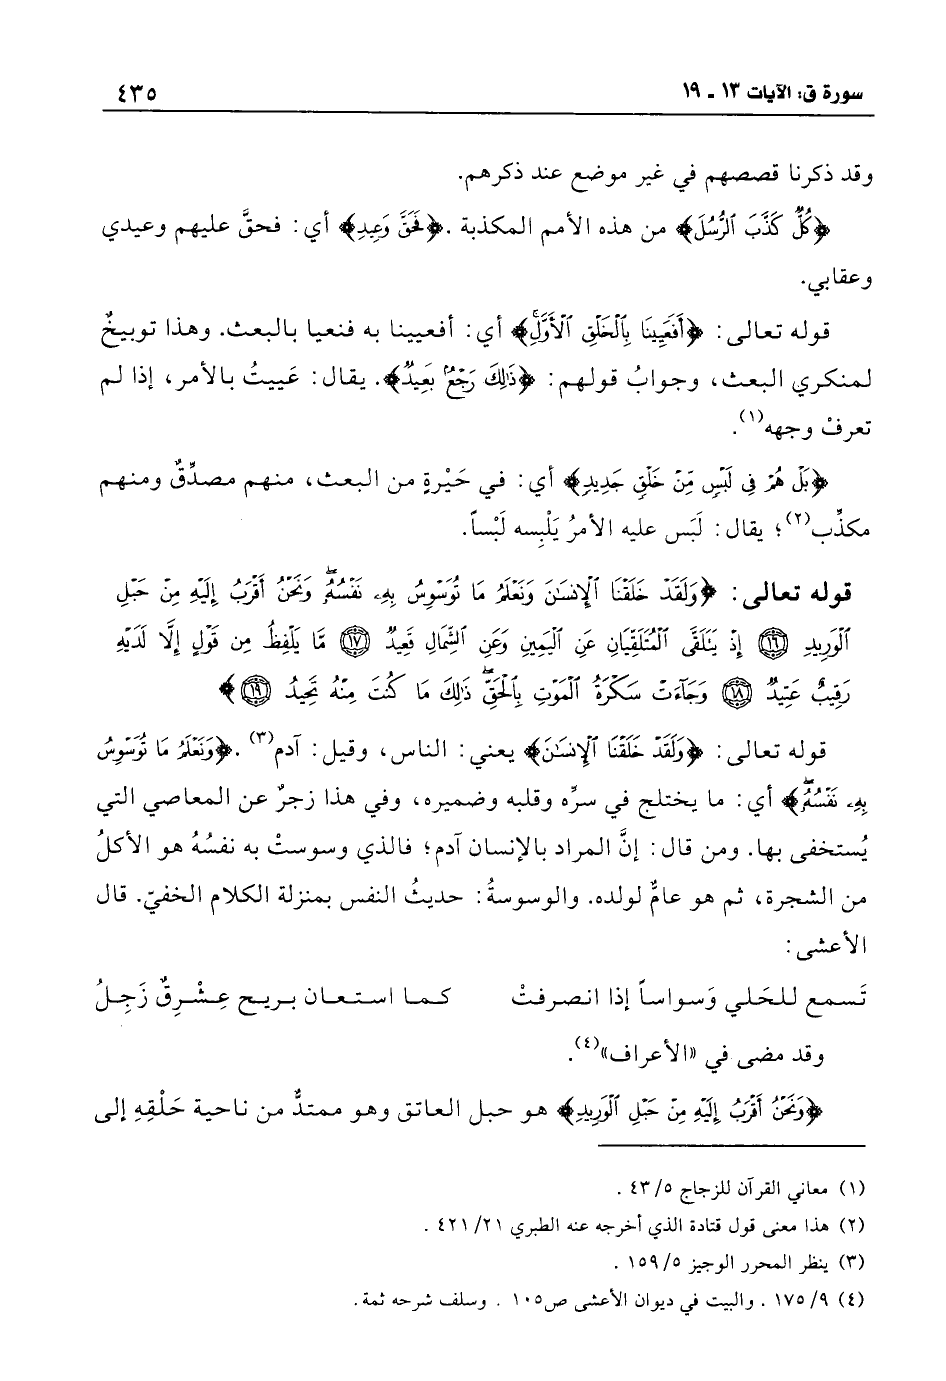 سورة ق: الآيات ١٣ - ١٩
٤٣٥
وقد ذكرنا قصصهم في غير موضع عند ذكرهم.
﴿كُلٌّ كَذَّبَ ٱلرُّسُلَ﴾ من هذه الأمم المكذبة. ﴿فَحَقَّ وَعِيدِ﴾ أي: فحقَّ عليهم وعيدي
وعقابي.
قوله تعالى: ﴿أَفَعَيِينَا بِٱلْخَلْقِ ٱلْأَوَّلِۚ﴾ أي: أفعيينا به فنعيا بالبعث. وهذا توبيخٌ
لمنكري البعث، وجوابُ قولهم: ﴿ذَٰلِكَ رَجْعُۢ بَعِيدٌ﴾. يقال: عَييتُ بالأمر، إذا لم
تعرفْ وجهه(١).
﴿بَلْ هُمْ فِى لَبْسٍ مِّنْ خَلْقٍ جَدِيدٍ﴾ أي: في حَيْرةٍ من البعث، منهم مصدِّقٌ ومنهم
مكذِّب(٢)؛ يقال: لَبَس عليه الأمرُ يَلْبِسه لَبْساً.
قوله تعالى: ﴿وَلَقَدْ خَلَقْنَا ٱلْإِنسَٰنَ وَنَعْلَمُ مَا تُوَسْوِسُ بِهِۦ نَفْسُهُۥۖ وَنَحْنُ أَقْرَبُ إِلَيْهِ مِنْ حَبْلِ
ٱلْوَرِيدِ ﴿١٦﴾ إِذْ يَتَلَقَّى ٱلْمُتَلَقِّيَانِ عَنِ ٱلْيَمِينِ وَعَنِ ٱلشِّمَالِ قَعِيدٌ ﴿١٧﴾ مَّا يَلْفِظُ مِن قَوْلٍ إِلَّا لَدَيْهِ
رَقِيبٌ عَتِيدٌ ﴿١٨﴾ وَجَآءَتْ سَكْرَةُ ٱلْمَوْتِ بِٱلْحَقِّۖ ذَٰلِكَ مَا كُنتَ مِنْهُ تَحِيدُ ﴿١٩﴾﴾
قوله تعالى: ﴿وَلَقَدْ خَلَقْنَا ٱلْإِنسَٰنَ﴾ يعني: الناس، وقيل: آدم(٣). ﴿وَنَعْلَمُ مَا تُوَسْوِسُ
بِهِۦ نَفْسُهُۥۖ﴾ أي: ما يختلج في سرِّه وقلبه وضميره، وفي هذا زجرٌ عن المعاصي التي
يُستخفى بها. ومن قال: إنَّ المراد بالإنسان آدم؛ فالذي وسوستْ به نفسُهُ هو الأكلُ
من الشجرة، ثم هو عامٌّ لولده. والوسوسةُ: حديثُ النفس بمنزلة الكلام الخفيّ. قال
الأعشى:
تَسمع للحَلي وَسواساً إذا انصرفتْ كما استعان بريح عِشْرِقٌ زَجِلُ
وقد مضى في «الأعراف»(٤).
﴿وَنَحْنُ أَقْرَبُ إِلَيْهِ مِنْ حَبْلِ ٱلْوَرِيدِ﴾ هو حبل العاتق وهو ممتدٌّ من ناحية حَلْقِهِ إلى
(١) معاني القرآن للزجاج ٥/ ٤٣ .
(٢) هذا معنى قول قتادة الذي أخرجه عنه الطبري ٢١/ ٤٢١ .
(٣) ينظر المحرر الوجيز ٥/ ١٥٩ .
(٤) ٩/ ١٧٥ . والبيت في ديوان الأعشى ص١٠٥ . وسلف شرحه ثمة.